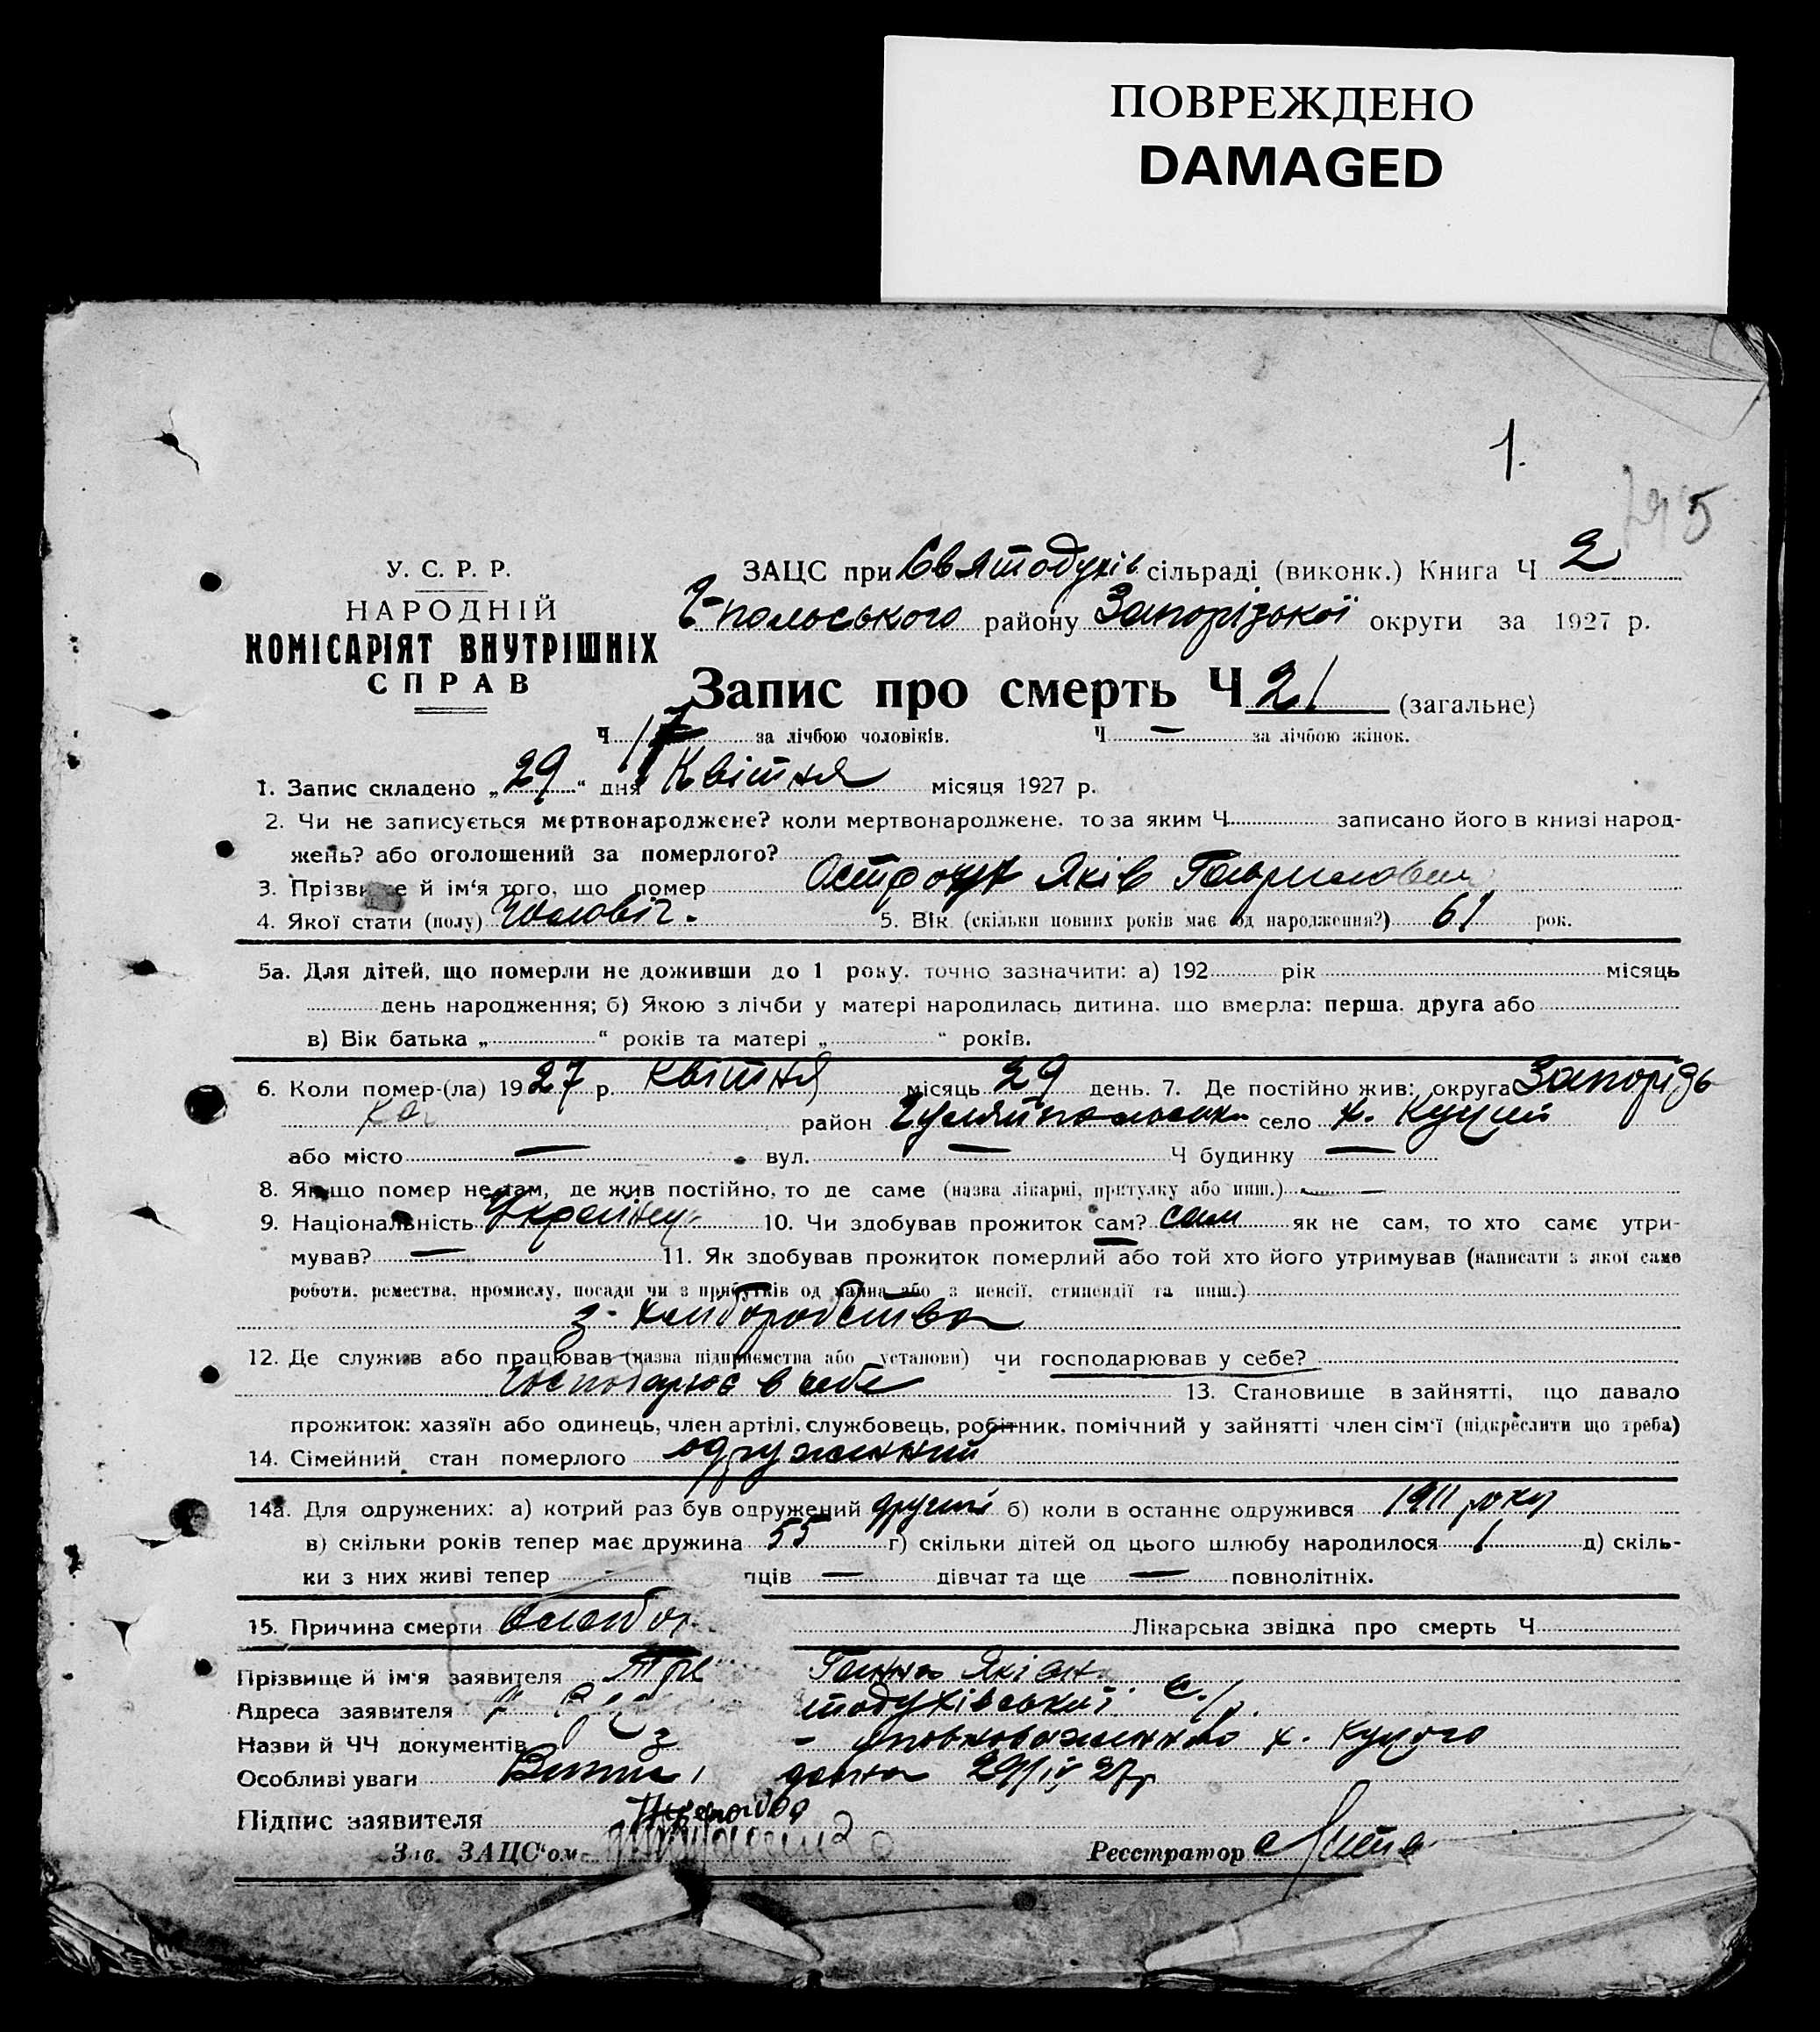 ПОВРЕЖДЕНО
DAMAGED
1.
5
У. С. Р. Р.
НАРОДНІЙ
КОМІСАРІЯТ ВНУТРІШНІХ
СПРАВ
ЗАЦС при Святодухів сільраді (виконк.) Книга Ч 2
Г-польського району Запорізької округи за 1927 р.
Запис про смерть Ч 21 (загальне)
Ч 17 за лічбою чоловіків. Ч — за лічбою жінок.
1. Запис складено „29“ дня Квітня місяця 1927 р.
2. Чи не записується мертвонароджене? коли мертвонароджене, то за яким Ч записано його в книзі народ-
жень? або оголошений за померлого?
3. Прізвище й ім'я того, що помер Яків Гаврилович
4. Якої стати (полу) Чоловіч. 5. Вік (скільки повних років має од народження?) 61 рок.
5а. Для дітей, що померли не доживши до 1 року, точно зазначити: а) 192 рік місяць
день народження; б) Якою з лічби у матері народилась дитина, що вмерла: перша, друга або
в) Вік батька „ “ років та матері „ “ років.
6. Коли помер-(ла) 1927 р. Квітня місяць 29 день. 7. Де постійно жив: округа Запорізь
ка район Гуляйпольськ село х. Куций
або місто — вул. — Ч будинку —
8. Якщо помер не там, де жив постійно, то де саме (назва лікарні, притулку або инш.) —
9. Національність 10. Чи здобував прожиток сам? сам як не сам, то хто саме утри-
мував? — 11. Як здобував прожиток померлий або той хто його утримував (написати з якої саме
роботи, ремества, промислу, посади чи з прибутків од майна або з пенсії, стипендії та инш.)
з- хліборобства
12. Де служив або працював (назва підприємства або установи) чи господарював у себе?
Господарює в себе 13. Становище в зайнятті, що давало
прожиток: хазяїн або одинець, член артілі, службовець, робітник, помічний у зайнятті член сім'ї (підкреслити що треба)
14. Сімейний стан померлого одружинний
14а. Для одружених: а) котрий раз був одружений другий б) коли в останнє одружився 1911 року
в) скільки років тепер має дружина 55 г) скільки дітей од цього шлюбу народилося 1 д) скіль-
ки з них живі тепер пців — дівчат та ще — повнолітніх.
15. Причина смерти Лікарська звідка про смерть Ч
Прізвище й ім'я заявителя Ганна Яківн.
Адреса заявителя тодухівської с/р.
Назви й ЧЧ документів з х. Куцого
Особливі уваги дана 29/IV 27р
Підпис заявителя
Зав. ЗАЦС'ом
Реєстратор